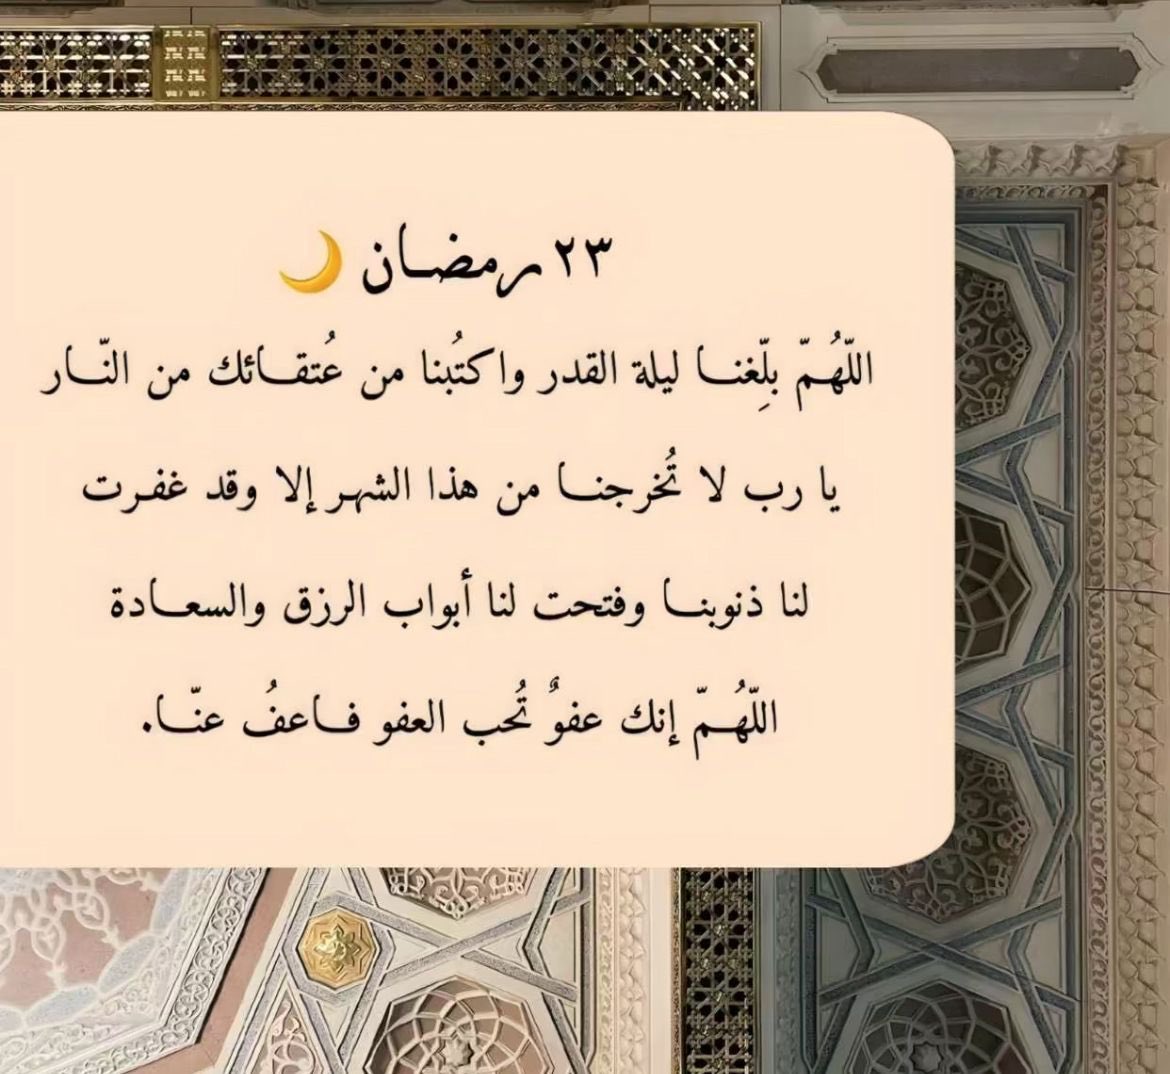 ٢٣ رمضان 🌙
اللّهُمّ بلِّغنا ليلة القدر واكتُبنا من عُتقائك من النّار
يا رب لا تُخرجنا من هذا الشهر إلا وقد غفرت
لنا ذنوبنا وفتحت لنا أبواب الرزق والسعادة
اللّهُمّ إنك عفوٌ تُحب العفو فاعفُ عنّا.